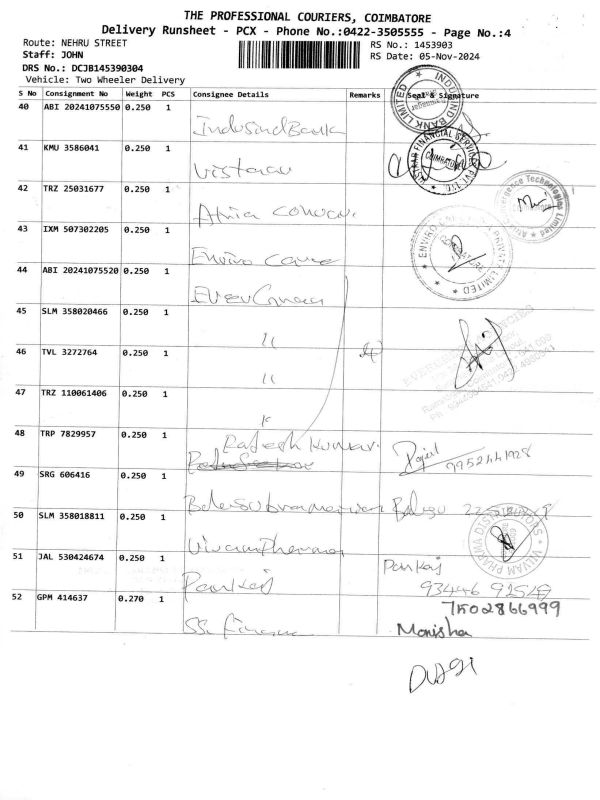 THE PROFESSIONAL COURIERS, COIMBATORE
Delivery Runsheet - PCX - Phone No.:0422-3505555 - Page No.:4
Route: NEHRU STREET
RS No.: 1453903
Staff: JOHN
RS Date: 05-Nov-2024
DRS No.: DCJB145390304
Vehicle: Two Wheeler Delivery
S No Consignment No Weight PCS Consignee Details Remarks Seal & Signature
40 ABI 20241075550 0.250 1 IndusindBank
INDUSIND BANK LIMITED
41 KMU 3586041 0.250 1 Vistaar
VISTAAR FINANCIAL SERVICES PVT. LTD.
COIMBATORE
42 TRZ 25031677 0.250 1
43 IXM 507302205 0.250 1 Enviro Care
ENVIRO PRIVATE LIMITED
44 ABI 20241075520 0.250 1
45 SLM 358020466 0.250 1 "
46 TVL 3272764 0.250 1 "
47 TRZ 110061406 0.250 1 "
48 TRP 7829957 0.250 1 Rajesh Kumar.
9952441928
49 SRG 606416 0.250 1 Balasubramanian
50 SLM 358018811 0.250 1
VILVAM PHARMA DISTRIBUTORS
51 JAL 530424674 0.250 1 Pankaj Pankaj
52 GPM 414637 0.270 1 SS Finance
7502866999
Monisha